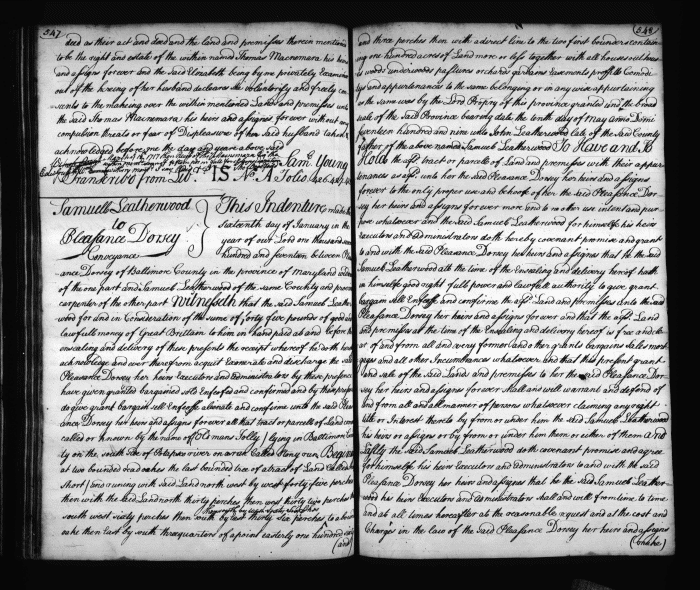 547
deed as their act and deed and the land and premisses therein mentioned
to be the right and estate of the within named Thomas Macnemara his heirs
and assigns forever and the Said Elizabeth being by me privately Examined
out of the hearing of her husband declares she voluntarily and freely
to the making over the within mentioned Lands and premisses unto
the said Thomas Macnemara his heirs and assigns forever without any
compulsion threats or fear of Displeasure of her Said husband
acknowledged before me the day and year above said
Saml. Young
Transcribd from Lib. IS No. A folio
Samuell Leatherwood
to
Pleasance Dorsey
Conveyance
This Indenture made the
sixteenth day of January in the
year of our Lord one thousand seven
hundred and seventeen between
ance Dorsey of Baltimore County in the province of Maryland
of the one part and Samuell Leatherwood of the same County and province
carpenter of the other part Witnesseth that the said Samuel Leather
wood for and in Consideration of the sume of forty five pounds of good and
lawfull money of Great Brittain to him in hand paid at and before the
ensealing and delivery of these presents the receipt whereof he doth hereby
acknowledge and ever therefrom acquit Exonerate and discharge the said
Pleasance Dorsey her heirs Executors and administrators by these presents
have given granted bargained sold Enfeofed and confirmed and by these presents
do give grant bargain sell Enfeofe alienate and confirme unto the said Pleas
ance Dorsey her heirs and assigns forever all that tract or parcell of Land
called or known by the name of Old mans folly lying in Baltimore Coun
ty on the south side of Patapsco river on a run Called Stony run Beginning
at two bounded read oakes the last bounded tree of a tract of Land called
short and runing with said Land north west by west forty five perches
then with the said Land north thirty perches then west thirty two perches
south west sixty perches then south by east thirty six perches to a bound
oake then East by south three quarters of a point easterly one hundred
(and
548
and three perches then with a direct line to the two first bounders contain
ing one hundred acres of Land more or less together with all houses out hous
es woods underwoods pastures orchards gardens easements profits Comodi
tys and appurtenances to the same belonging or in any wise appurtaining
as the same was by the Lord Propry of this province granted under the broad
seale of the Said Province bearing date the tenth day of May anno Domi
seventeen hundred and nine unto John Leatherwood late of the said County
father of the above named Samuell Leatherwood To Have and To
Hold the aforesd. tract or parcele of Land and premisses with their appur
tenances as aforesd. unto her the said Pleasance Dorsey her heirs and assigns
forever to the only proper use and behoofe of her the said Pleasance Dor
sey her heirs and assigns for ever more and to no other use intent and pur
pose whatsoever and the said Samuel Leatherwood for himself his heirs
Executors and administrators doth hereby covenant promise and grant
to and with the said Pleasance Dorsey her heirs and assigns that he the said
Samuel Leatherwood att the time of the Ensealing and delivery hereof hath
in himselfe good right full power and lawfull authority to give grant
bargain sell Enfeofe and confirme the aforesd. Land and premisses unto the said
Pleasance Dorsey her heirs and assigns for ever and that the aforesd. Land
and premisses at the time of the Ensealing and delivery hereof is free and clear
of and from all and every former and other grants bargains sales mort
gages and all other Incumbrances whatsoever and that this present grant
and sale of the said Lands and premisses to her the said Pleasance Dor
sey her heirs and assigns for ever shall and will warrant and defend of
and from all and all manner of persons whatsoever claiming any right
title or Interest thereto by from or under him the said Samuell Leatherwood
his heirs or assigns or by from or under him them or either of them And
Lastly the said Samuell Leatherwood do the covenant promise and agree
for himselfe his heirs Executors and administrators to and with the said
Pleasance Dorsey her heirs and assigns that he the said Samuel Leather
wood his heirs Executors and administrators shall and will from time to time
and at all times hereafter at the reasonable request and at the cost and
Charges in the law of the said Pleasance Dorsey her heirs and assigns
(make